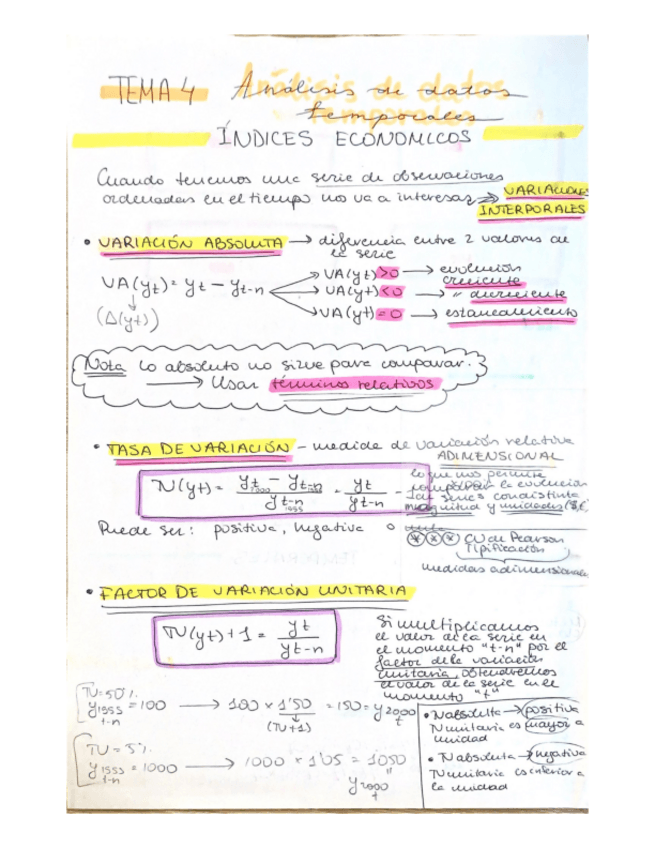 TEMA 4 Análisis de datos
temporales
ÍNDICES ECONOMICOS
Cuando tenemos una serie de observaciones
ordenadas en el tiempo nos va a interesar → VARIACIONES
INTERPORALES
• VARIACIÓN ABSOLUTA → diferencia entre 2 valores de
la serie
VA(yt) = yt - yt-n
(Δ(yt))
VA(yt) > 0 → evolución
creciente
VA(yt) < 0 → " decreciente
VA(yt) = 0 → estancamiento
Nota Lo absoluto no sirve para comparar.
→ Usar términos relativos
• TASA DE VARIACIÓN - medida de variación relativa
ADIMENSIONAL
TV(yt) = yt - yt-n / yt-n = yt / yt-n -
lo que nos permite
comparar la evolución
las series con distinta
magnitud y unidades ($,€)
Puede ser: positiva, negativa o
*** CV de Pearson
Tipificación
medidas adimensionales
• FACTOR DE VARIACIÓN UNITARIA
TV(yt) + 1 = yt / yt-n
Si multiplicamos
el valor de la serie en
el momento "t-n" por el
factor de la variación
unitaria, obtendremos
el valor de la serie en el
momento "t"
TV = 50%
y1999 = 100 → 100 × 1'50 = 150 = y2000
t-n (TV+1) t
TV = 5%
y1999 = 1000 → 1000 × 1'05 = 1050
t-n " y2000
t
• V absoluta → positiva
V unitaria es mayor a
unidad
• V absoluta → negativa
V unitaria es inferior a
la unidad